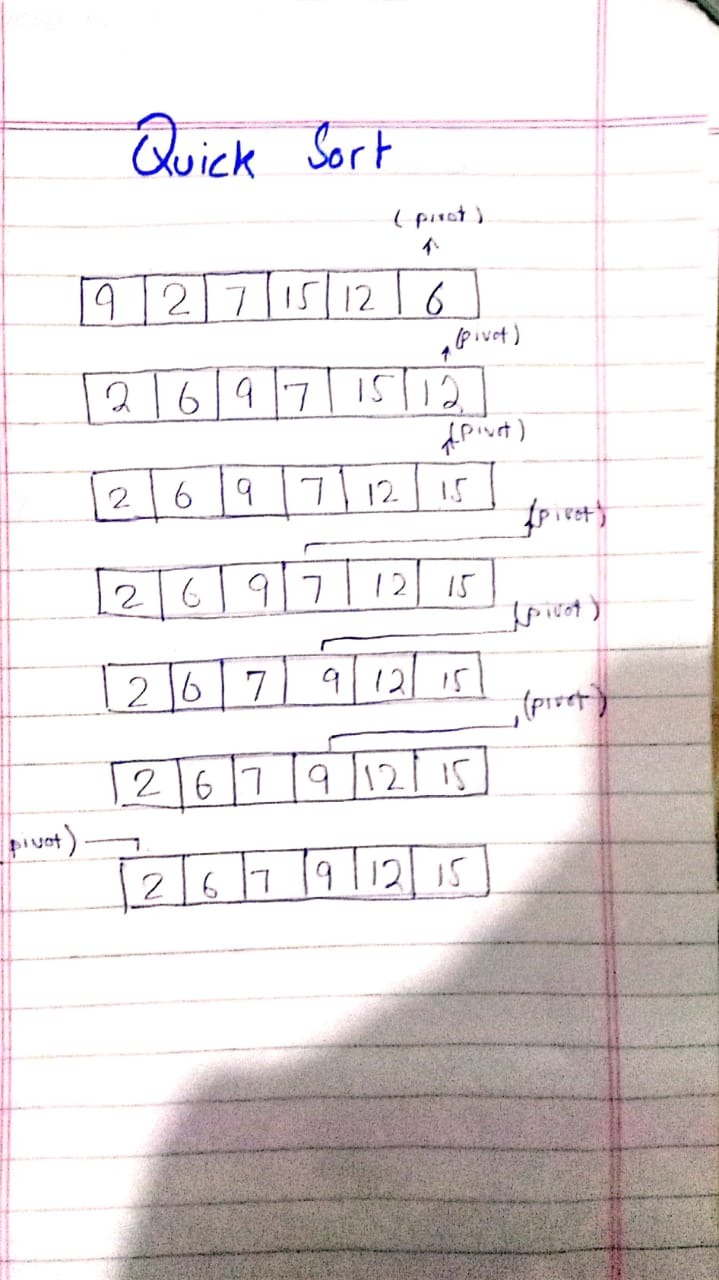 Quick Sort
(pivot)
9 2 7 15 12 6
(pivot)
2 6 9 7 15 12
(pivot)
2 6 9 7 12 15
(pivot)
2 6 9 7 12 15
(pivot)
2 6 7 9 12 15
(pivot)
2 6 7 9 12 15
pivot)
2 6 7 9 12 15